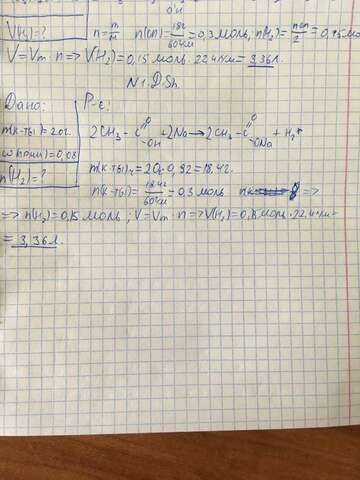 V(H₂)=?
n=m/M n(сп)=18г/60г/м=0,3 моль; n(H₂)=nсп/2=0,15мо
V=Vm·n=>V(H₂)=0,15 моль·22,4л/м=3,36л.
N1.D.Sh.
Дано: Р-е:
m(к-ты)=20г.
2CH₃-C(=O)-OH+2Na→2CH₃-C(=O)-ONa+H₂↑
w(прим)=0,08
n(H₂)=?
m(к-ты)ч=20·0,92=18,4г.
n(к-ты)=18,4г/60г/м=0,3 моль =>
=> n(H₂)=0,15 моль; V=Vm·n=>V(H₂)=0,15 моль·22,4л/м=
=3,36л.